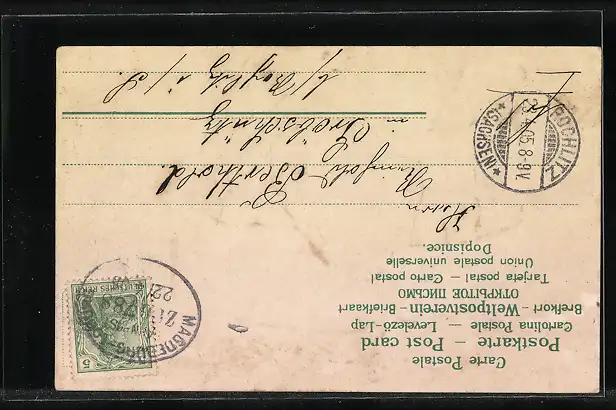 Carte Postale
Postkarte — Post card
Cartolina Postale — Levelező-Lap
Brefkort — Weltpostverein — Briefkaart
ОТКРЫТОЕ ПИСЬМО
Tarjeta postal — Carto postal
Union postale universelle
Dopisnice.
5
DEUTSCHES REICH
MAGDEBURG
22
Herrn
Reinhold Berthold.
in Gröbschütz
b/ Rochlitz i/S.
ROCHLITZ
05. 8-9V
*(SACHSEN)*